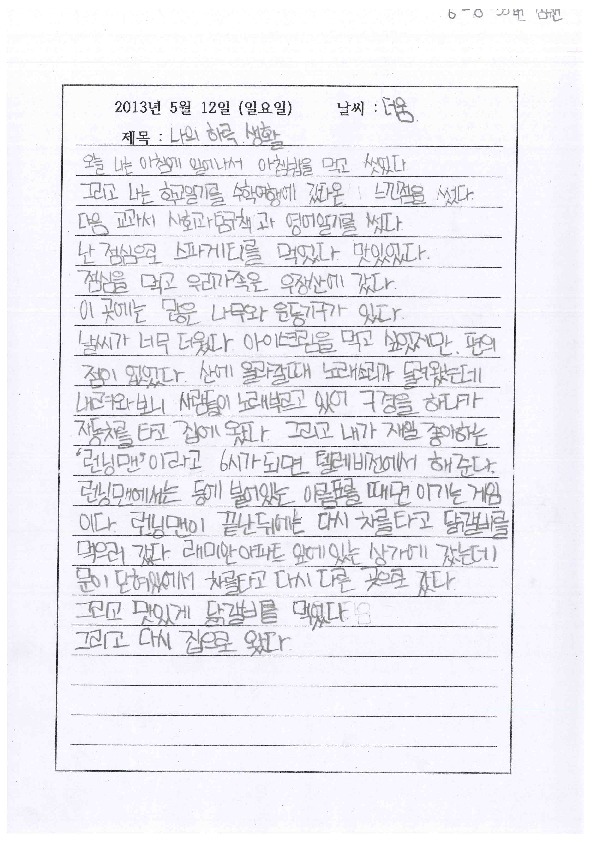 2013년 5월 12일 (일요일) 날씨 : 더움
제목 : 나의 하루 생활
오늘 나는 아침에 일어나서 아침밥을 먹고 씻었다
그리고 나는 학교일기를 수학여행에 갔다온 느낀점을 썼다.
다음 교과서 사회과탐구책 과 영어일기를 썼다.
난 점심으로 스파게티를 먹었다. 맛있었다.
점심을 먹고 우리가족은 우장산에 갔다.
이 곳에는 많은 나무와 운동기구가 있다.
날씨가 너무 더웠다 아이스크림을 먹고 싶었지만. 편의
점이 없었다. 산에 올라갈때 노래소리가 들려왔는데
내려와보니 사람들이 노래부르고 있어 구경을 하다가
자동차를 타고 집에 왔다. 그리고 내가 제일 좋아하는
'런닝맨'이라고 6시가 되면 텔레비전에서 해준다.
런닝맨에서는 등에 붙어있는 이름표를 때면 이기는 게임
이다. 런닝맨이 끝난뒤에는 다시 차를타고 닭갈비를
먹으러 갔다. 래미안아파트 앞에있는 상가에 갔는데
문이 닫혀있에서 차를타고 다시 다른 곳으로 갔다.
그리고 맛있게 닭갈비를 먹었다.
그리고 다시 집으로 왔다